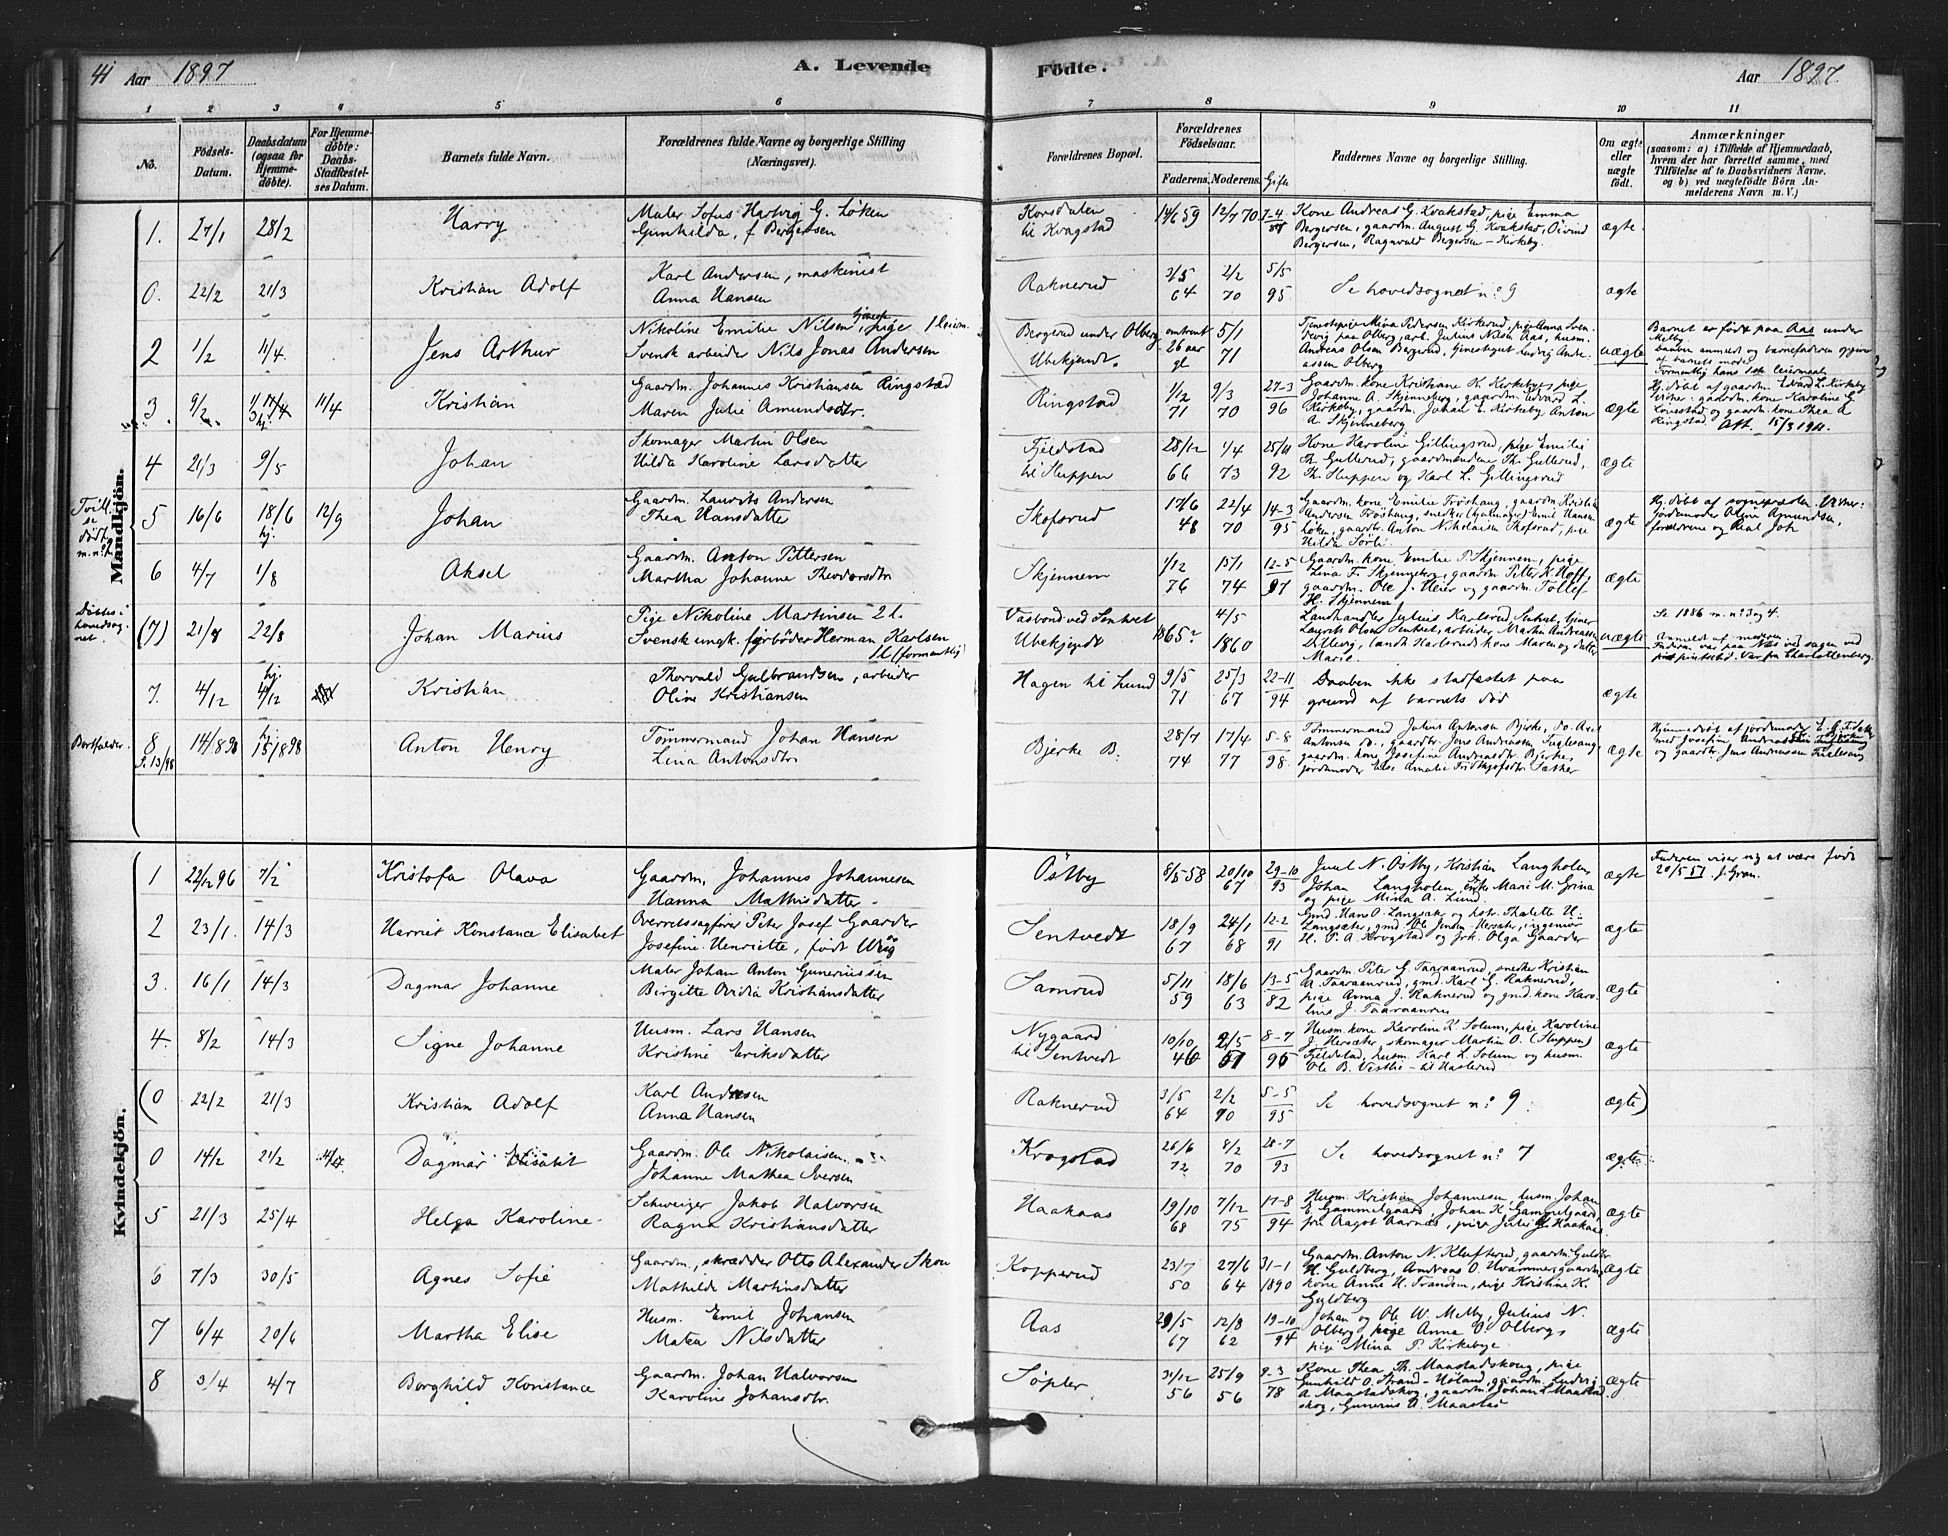 41 Aar 1897
A. Levende
Födte.
Aar 1897.
1 2 3 4 5 6 7 8 9 10 11
No.
Födsels-Datum.
Daabsdatum (ogsaa for Hjemme-döbte).
For Hjemme-döbte: Daabs-Stadfæstel-ses Datum.
Barnets fulde Navn.
Forældrenes fulde Navne og borgerlige Stilling (Næringsvei).
Forældrenes Bopæl.
Forældrenes Födselsaar.
Faderens. Moderens. Gifte
Faddernes Navne og borgerlige Stilling.
Om ægte eller uægte födt.
Anmærkninger
(saasom: a) i Tilfælde af Hjemmedaab, hvem der har forrettet samme, med Tilföielse af to Daabsvidners Navne, og b) ved uægtefödte Börn An-melderens Navn m. V.)
Mandkjön.
1. 27/1 28/2 Harry
Maler Sofus Hartvig G. Løken
Gunhilda, f Bergersen
Korsdalen til Kragstad
14/6 59 12/7 70 7-4 87
Kone Andreas G. Kvakstad, pige Emma
Bergersen, gaardm. August G. Kvakstad, Öivind
Bergersen, Ragnvald Bergersen - Kirkeby.
ægte
0. 22/2 21/3 Kristian Adolf
Karl Andersen, maskinist
Anna Hansen
Raknerud
3/5 64 2/2 70 5/5 95
Se hovedsognet n: 9
ægte
2 1/2 11/4. Jens Arthur
Nikoline Emilie Nilsen, tjeneste pige 1 leierm.
Svensk arbeider Nils Jonas Andersen
Bergerud under Olberg
Ubekjendt.
omtrent 26 aar gl 5/1 71
Tjenestepige Mina Pedersen Kirkerud, pige Anna Sven-
Andreas Olsen Bergerud, tjenestegut Ludvig Andre-
assen Olberg
uægte
Barnet er født paa Aas under
Melby
Daaben anmeldt og barnefaderen opgivet
af barnets moder
Formentlig hans 1ste leiermaal
3. 9/2 11/4 Kristian
Gaardm. Johannes Kristiansen Ringstad
Maren Julie Amundsdtr.
Ringstad
1/12 71 9/3 70 27-3 96
Gaardm. kone Kristiane H. Kirkeby, pige
Johanne A. Skjenneberg, gaardm. Edvard L.
Kirkeby, gaardm. Johan E. Kirkeby, Anton
A. Skjenneberg
ægte
Hj. døbt af gaardm. Edvard L. Kirkeby
Vidner: gaardm. kone Karoline G
Lovestad og gaardm. kone Thea A
Ringstad. Att. 15/3 1911.
4 21/3 9/5 Johan
Skomager Martin Olsen
Hilda Karoline Larsdatter
Fjeldstad til Huppen
28/12 66 1/4 73 92
Kone Karoline Gillingsrud, pige Emilie
Th. Gullerud, gaardmændene Th. Gullerud,
Th. Huppen og Karl L. Gillingsrud
ægte
Tvill. se død m. n: 2
5 16/6 18/6 hj. 12/9 Johan
Gaardm. Laurits Andersen
Thea Hansdatter
Skofsrud
17/6 48 22/4 70 14-3 95
Gaardm. kone Emilie Trøshaug, gaardm. Kristian
Andersen Trøshaug, snedker Emil Hansen
Løken, gaardbr. Anton Nikolaisen Skofsrud, pige
Hilda Sørli
ægte
Hj. døbt af sognepresten. Vidner:
jordemoder Olga Amundsen,
forældrene og
6 4/7 1/8 Aksel
Gaardm. Anton Pettersen
Martha Johanne Theodorsdtr
Skjennem
1/12 76 15/1 74 12-5 97
Gaardm. kone Emilie P. Skjennem, pige
Lina F. Skjenneberg, gaardm Petter K. Hoff,
gaardm. Ole J. Heier og gaardm. Tollef
H. Skjennem
ægte
Døbtes i hovedsognet.
(7) 21/7 22/8 Johan Marius
Pige Nikoline Martinsen 2 l.
Svensk ungk. forbøder Herman Karlsen
1 l (formentlig)
Vasbond ved Sentvet
Ubekjendt
1865? 4/5 1860
Landhandler Julius Karlsrud, Sentvet, tjener
Laurits Olsen Sentvet, arbeider Martin Andreassen
Lilleng, landh Karlsruds kone Maren og datter
Marie
uægte
Se 1886 m. n: 3 og 4.
Anmeldt af moderen
7. 4/12 hj. 4/12 Kristian
Thorvald Gulbrandsen, arbeider
Oline Kristiansen
Hagen til Lund
9/5 71 25/3 67 22-11 94
Daaben ikke stadfæstet paa
grund af barnets død
ægte
Bortfalder.
8 S. 13/98 14/8 98 hj. 15/8 98 Anton Henry
Tømmermand Johan Hansen
Lina Antonsdtr.
Bjerke B:
28/7 74 17/4 77 5-8 98
Tømmermand Julius Antonsen Bjerke, do. Axel
Antonsen do., gaardbr. Jens Andreassen Fuglesang
gaardm. kone Josefine Andreasdtr. Bjerke,
jordemoder Else Amalie Fridthjofsdtr. Sæther
ægte
Hjemmedøbt af jordemoder
og gaardbr. Jens Andreassen Fuglesang
Kvindekjön.
1 22/12 96 7/2 Kristofa Olava
Gaardm. Johannes Johannesen
Hanna Mathisdatter
Östby
8/5 58 20/10 67 29-10 93
Juul N. Östby, Kristian Langholen,
Johan Langholen, enke Marie M. Grina
og pige Mina A. Lund.
ægte
Faderen viser sig at være født
20/5 57. J. Gran.
2 23/1. 14/3 Harriet Konstance Elisabet
Overretssagfører Peter Josef Gaarder
Josefine Henriette, født
Sentvedt
18/9 67 24/1 68 12-2 91
Gmd. Hans O. Langsæt og hstr. Thalette H.
Langsæter, gmd. Ole Jensen Hersæter, ingeniør
H. P. A. Krogstad og frk. Olga Gaarder
ægte
3. 16/1 14/3 Dagmar Johanne
Maler Johan Anton Gunerius sen
Birgitte Ovidia Kristiansdatter
Samrud
5/11 59 18/6 63 13-5 82
Gaardm. Peter G. Taaraanrud, snedker Kristian
A. Taaraanrud, gmd. Karl G. Raknerud,
pige Anna J. Raknerud og gmd. kone Karo-
line J. Taaraanrud
ægte
4. 8/2 14/3 Signe Johanne
Husm. Lars Hansen
Kristine Eriksdatter
Nygaard til Sentvedt
10/10 46 2/5 8-7 96
Husm. kone Karoline K. Solum, pige Karoline
J. Hersæter, skomager Martin O. (Huppen)
Fjeldstad, husm. Karl L. Solum og husm.
Ole B. Vestlie - til Haslerud
ægte
(0 22/2 21/3 Kristian Adolf
Karl Andersen
Anna Hansen
Raknerud
3/5 64 2/2 70 5-5 95
Se hovedsognet n: 9.
ægte)
0 14/2 21/2 Dagmar Elisabet
Gaardm. Ole Nikolaisen
Johanne Mathea Iversen
Krogstad
26/6 72 8/2 70 28-7 93
Se hovedsognet n: 7
ægte
5 21/3 25/4 Helga Karoline
Schweizer Jakob Halvorsen
Ragna Kristiansdatter
Haakaas
19/10 68 7/12 75 17-8 94
Husm. Kristian Johannesen, husm. Johan
E. Gammelgaard, Johan K. Gammelgaard,
frk Aagot Aarnæs, pige Julie Haakaas
ægte
6 7/3 30/5 Agnes Sofie
Gaardm., skrædder Otto Alexander Skou
Mathilde Martinsdatter
Kopperud
23/7 50 27/6 64 31-1 1890
Gaardm. Anton N. Klufterud, gaardm. Guldbr.
H. Guldberg, Andreas O. Hvammersgaarden,
kone Anne H. Trandem, pige Kristine K.
Guldberg
ægte
7 6/4 20/6 Martha Elise
Husm. Emil Johansen
Matea Nilsdatter
Aas
29/5 67 12/8 62 19-10 94
Johan og Ole W. Melby, Julius N.
Olberg, pige Anna O. Olberg,
pige Mina P. Kirkebye
ægte
8 3/4 4/7 Borghild Konstance
Gaardm. Johan Halvorsen
Karoline Johansdtr.
Søpler
31/12 56 25/9 56 9-3 78
Kone Thea Th. Maastadskoug, pige
Gunhild O. Strand - Høland, gaardm. Ludvig
A. Maastadskog, gaardm. Johan L. Maastad-
skog, Gunerius A. Maastad
ægte